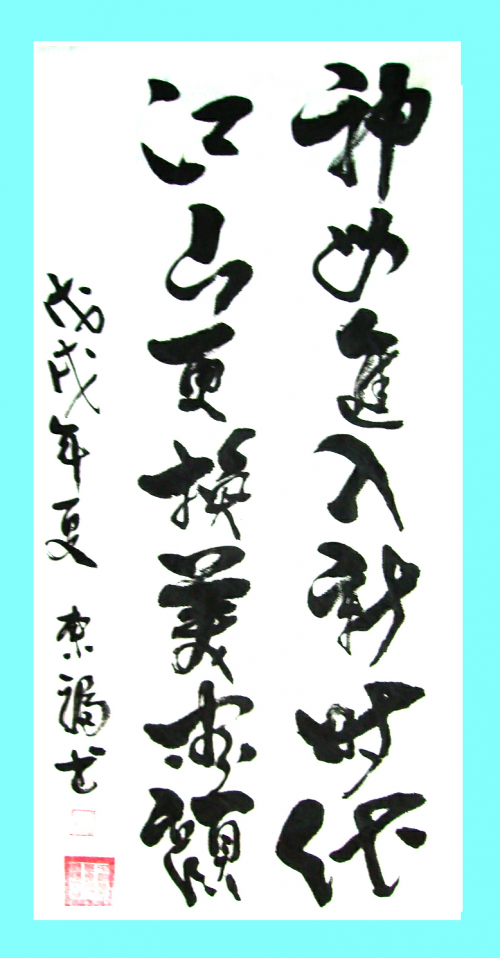 神州進入新时代
江山更换美容顏
戊戌年夏 福书